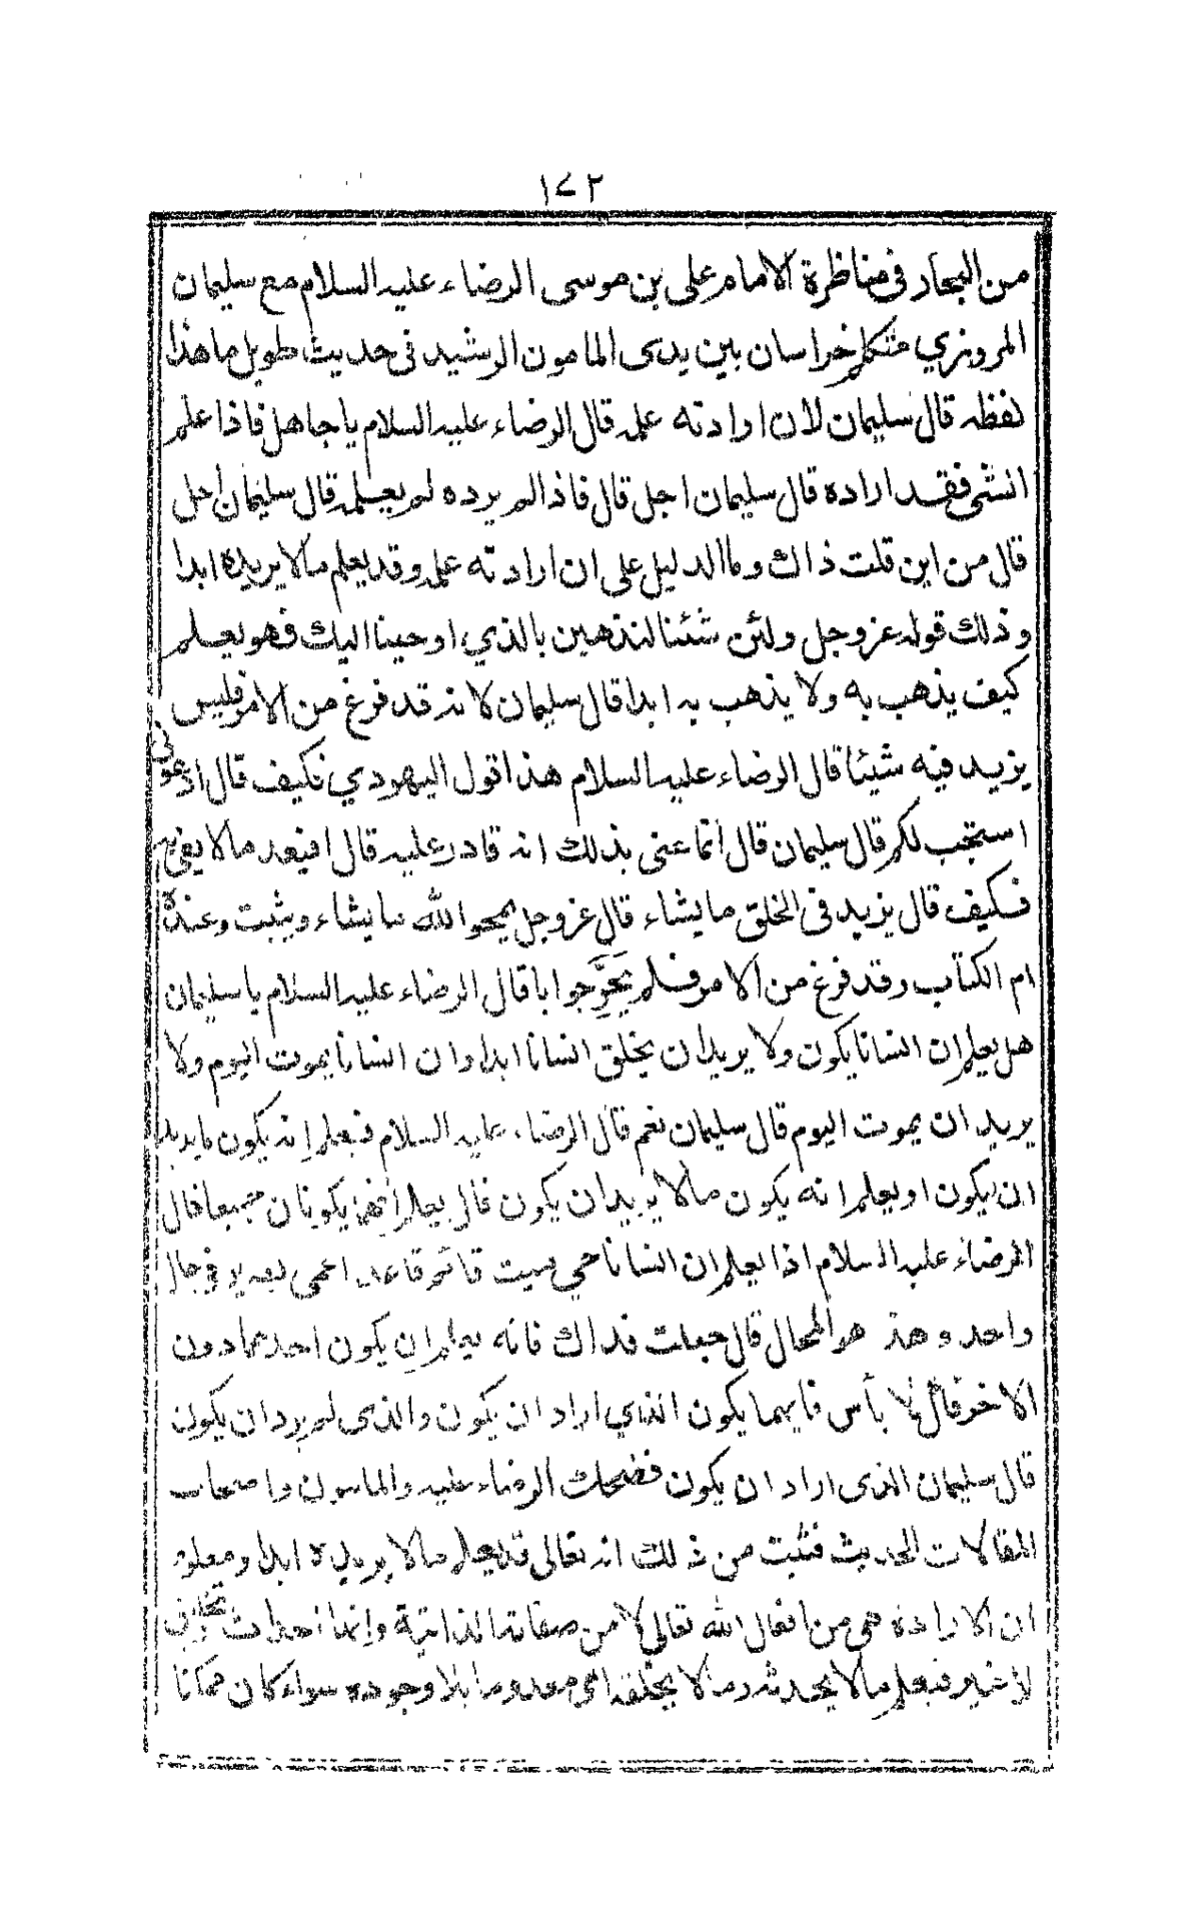 ١٧٢
من البحار في مناظرة الامام على بن موسى الرضاء عليه السلام مع سليمان
المروزي متكلم خراسان بين يدى المامون الرشيد في حديث طويل ما هذا
لفظه قال سليمان لان ارادته علمه قال الرضاء عليه السلام يا جاهل فاذا علم
الشئ فقد اراده قال سليمان اجل قال فاذا لم يرده لم يعلمه قال سليمان اجل
قال من اين قلت ذاك وما الدليل على ان ارادته علمه وقد يعلم ما لا يريده ابدا
وذلك قوله عز وجل ولئن شئنا لنذهبن بالذي اوحينا اليك فهو يعلم
كيف يذهب به ولا يذهب به ابدا قال سليمان لانه قد فرغ من الامر فليس
يزيد فيه شيئا قال الرضاء عليه السلام هذا قول اليهودي فكيف قال ادعوني
استجب لكم قال سليمان قال انما عنى بذلك انه قادر عليه قال افيعد ما لا يفي به
فكيف قال يزيد فى الخلق ما يشاء قال عز وجل يمحوا الله ما يشاء ويثبت وعنده
ام الكتاب وقد فرغ من الامر فلم يَحَرِّ جوابا قال الرضاء عليه السلام يا سليمان
هل يعلم ان انسانا يكون ولا يريد ان يخلق انسانا ابدا وان انسانا يموت اليوم ولا
يريد ان يموت اليوم قال سليمان نعم قال الرضاء عليه السلام فيعلم انه يكون ما يريد
ان يكون او يعلم انه يكون ما لا يريد ان يكون قال يعلم انهما يكونان جميعا قال
الرضاء عليه السلام اذا يعلم ان انسانا حي ميت قائم قاعد اعمى بصير في حال
واحد وهذ هو المحال قال جعلت فداك فانه يعلم ان يكون احدهما دون
الاخر قال لا بأس فايهما يكون الذي اراد ان يكون والذى لم يرد ان يكون
قال سليمان الذى اراد ان يكون فضحك الرضاء عليه والمامون واصحاب
المقالات الحديث فثبت من ذلك انه تعالى قد يعلم ما لا يريده ابدا ومعلوم
ان الارادة هي من افعال الله تعالى لا من صفاته الذاتية وانما احداث
لا غير فيعلم ما لا يحدثه وما لا يخلقه اى معدوما بلا وجوده سواء كان ممكنا